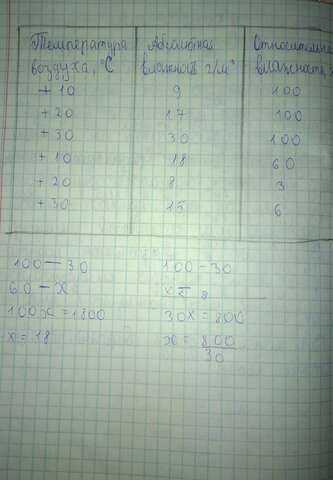 Температура Абсолютная Относительн
воздуха, °C влажность г/м³ влажность
+ 10 9 100
+ 20 17 100
+ 30 30 100
+ 10 18 60
+ 20 8 3
+ 30 15 6
100 — 30 100 - 30
60 — x x - 8
100x = 1800 30x = 800
x = 18 x = 800
30